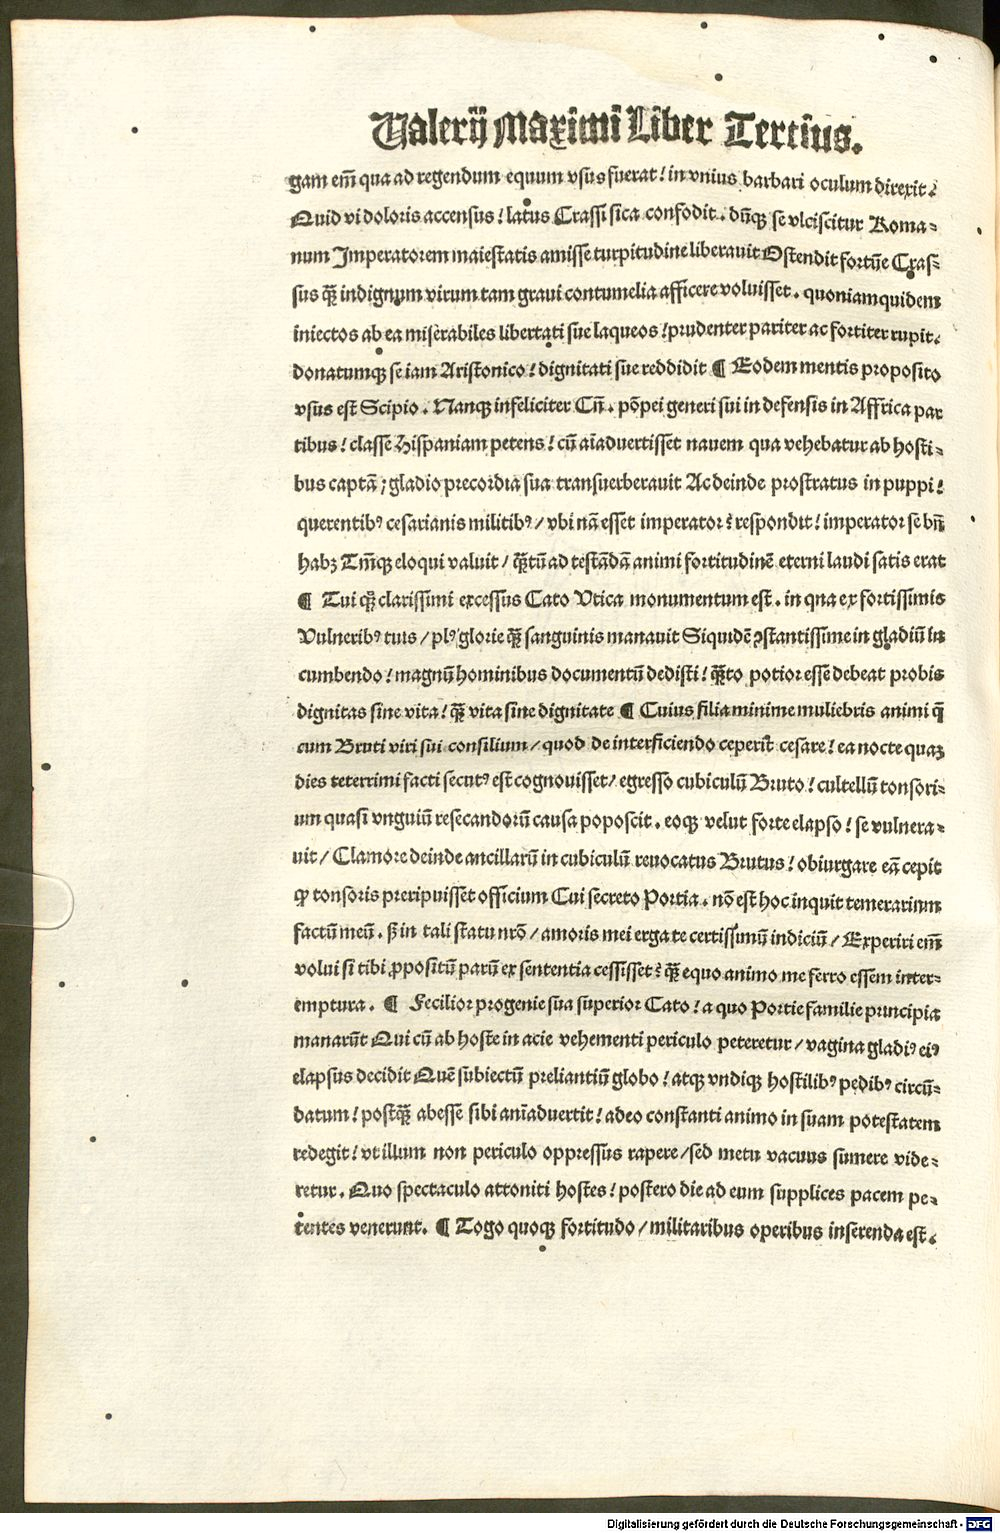 Ualerij Maximi Liber Tertius.
gam em̄ qua ad regendum equum vsus fuerat! in vnius barbari oculum direxit.
Quid vi doloris accensus! latus Crassi sica confodit. dūqꝫ se vlciscitur Roma-
num Imperatorem maiestatis amisse turpitudine liberauit Ostendit fortūe Cras-
sus qȝ̄ indignum virum tam graui contumelia afficere voluisset. quoniam quidem
iniectos ab ea miserabiles libertati sue laqueos! prudenter pariter ac fortiter rupit.
donatumqꝫ se iam Aristonico! dignitati sue reddidit ¶ Eodem mentis proposito
vsus est Scipio. Nanqꝫ infeliciter Cn̄. pōpei generi sui in defensis in Affrica par
tibus! classe Hispaniam petens! cū aīaduertisset nauem qua vehebatur ab hosti-
bus captā; gladio precordia sua transuerberauit Ac deinde prostratus in puppi!
querentibꝰ cesarianis militibꝰ/ vbi nā esset imperator? respondit! imperator se bn̄
habꝫ Tm̄qꝫ eloqui valuit/ qȝ̄tū ad testādā animi fortitudinē eterni laudi satis erat
¶ Tui qꝫ clarissimi excessus Cato Vtica monumentum est. in qua ex fortissimis
Vulneribꝰ tuis/ plꝰ glorie qȝ̄ sanguinis manauit Siquidē ꝯstantissime in gladiū in
cumbendo! magnū hominibus documentū dedisti! qȝ̄to potior esse debeat probis
dignitas sine vita! qȝ̄ vita sine dignitate ¶ Cuius filia minime muliebris animi q̄
cum Bruti viri sui consilium/ quod de interficiendo ceperat cesare! ea nocte quaꝫ
dies teterrimi facti secutꝰ est cognouisset/ egresso cubiculū Bruto! cultellū tonsori-
um quasi vnguiū resecandorū causa poposcit. eoqꝫ velut forte elapso! se vulnera-
uit/ Clamore deinde ancillarū in cubiculū reuocatus Brutus! obiurgare eā cepit
ꝙ tonsoris preripuisset officium Cui secreto Portia. nō est hoc inquit temerarium
factū meū. sꝫ in tali statu nrō/ amoris mei erga te certissimū indiciū/ Experiri em̄
volui si tibi ꝓpositū parū ex sententia cessisset? qȝ̄ equo animo me ferro essem inter-
emptura. ¶ Fecilior progenie sua superior Cato! a quo Portie familie principia
manarūt Qui cū ab hoste in acie vehementi periculo peteretur/ vagina gladiꝰ eiꝰ
elapsus decidit Quē subiectū preliantiū globo! atqꝫ vndiqꝫ hostilibꝰ pedibꝰ circū-
datum! postqȝ̄ abesse sibi anīaduertit! adeo constanti animo in suam potestatem
redegit! vt illum non periculo oppressus rapere/ sed metu vacuus sumere vide-
retur. Quo spectaculo attoniti hostes! postero die ad eum supplices pacem pe-
tentes venerunt. ¶ Togo quoqꝫ fortitudo/ militaribus operibus inserenda est.
Digitalisierung gefördert durch die Deutsche Forschungsgemeinschaft - DFG